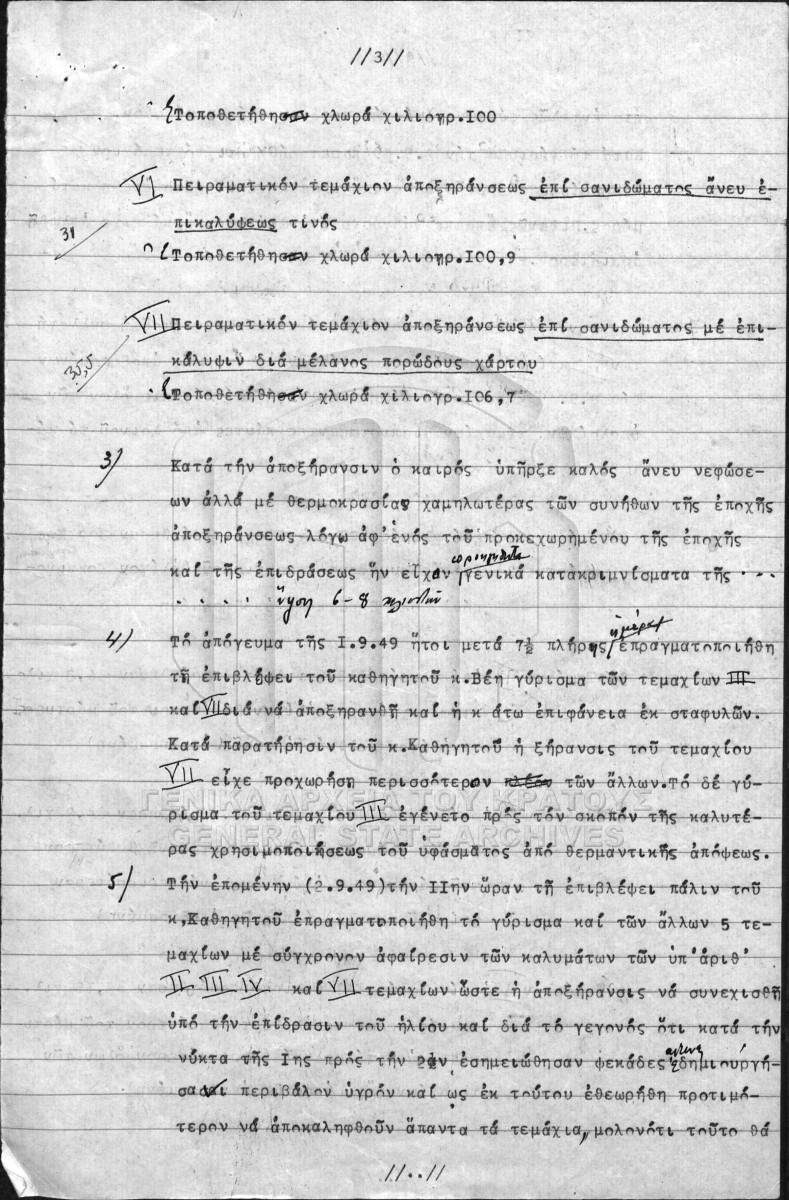 //3//
Τοποθετήθησαν χλωρά χιλιογρ.Ι00
VI Πειραματικόν τεμάχιον ἀποξηράνσεως ἐπί σανιδώματος ἄνευ ἐ-
πικαλύψεως τινός
31
Τοποθετήθησαν χλωρά χιλιογρ.Ι00,9
VII Πειραματικόν τεμάχιον ἀποξηράνσεως ἐπί σανιδώματος μέ ἐπι-
κάλυψιν διά μέλανος πορώδους χάρτου
35,5
Τοποθετήθησαν χλωρά χιλιογρ.Ι06,7
3) Κατά τήν ἀποξήρανσιν ὁ καιρός ὑπῆρξε καλός ἄνευ νεφώσε-
ων ἀλλά μέ θερμοκρασίας χαμηλωτέρας τῶν συνήθων τῆς ἐποχῆς
ἀποξηράνσεως λόγω ἀφ'ἑνός τοῦ προκεχωρημένου τῆς ἐποχῆς
καί τῆς ἐπιδράσεως ἥν εἶχον γενικά κατακριμνίσματα τῆς ...
.... 6-8
4) Τό ἀπόγευμα τῆς Ι.9.49 ἤτοι μετά 7½ πλήρης ἡμέρας ἐπραγματοποιήθη
τῇ ἐπιβλέψει τοῦ καθηγητοῦ κ.Βέη γύρισμα τῶν τεμαχίων III
καί VII διά νά ἀποξηρανθῇ καί ἡ κ άτω ἐπιφάνεια ἐκ σταφυλῶν.
Κατά παρατήρησιν τοῦ κ.Καθηγητοῦ ἡ ξήρανσις τοῦ τεμαχίου
VII εἶχε προχωρήση περισσότερον πλέον τῶν ἄλλων.Τό δέ γύ-
ρισμα τοῦ τεμαχίου III ἐγένετο πρός τόν σκοπόν τῆς καλυτέ-
ρας χρησιμοποιήσεως τοῦ ὑφάσματος ἀπό θερμαντικῆς ἀπόψεως.
5) Τήν ἐπομένην (2.9.49)τήν ΙΙην ὥραν τῇ ἐπιβλέψει πάλιν τοῦ
κ,Καθηγητοῦ ἐπραγματοποιήθη τό γύρισμα καί τῶν ἄλλων 5 τε-
μαχίων μέ σύγχρονον ἀφαίρεσιν τῶν καλυμάτων τῶν ὑπ'ἀριθ'
II III IV καί VII τεμαχίων ὥστε ἡ ἀποξήρανσις νά συνεχισθῇ
ὑπό τήν ἐπίδρασιν τοῦ ἡλίου καί διά τό γεγονός ὅτι κατά τήν
νύκτα τῆς Ιης πρός τήν 2αν ἐσημειώθησαν ψεκάδες δημιουργή-
σασαι περιβάλον ὑγρόν καί ὡς ἐκ τούτου ἐθεωρήθη προτιμό-
τερον νά ἀποκαληφθοῦν ἅπαντα τά τεμάχια, μολονότι τοῦτο θά
//..//
ΓΕΝΙΚΑ ΑΡΧΕΙΑ ΤΟΥ ΚΡΑΤΟΥΣ
GENERAL STATE ARCHIVES